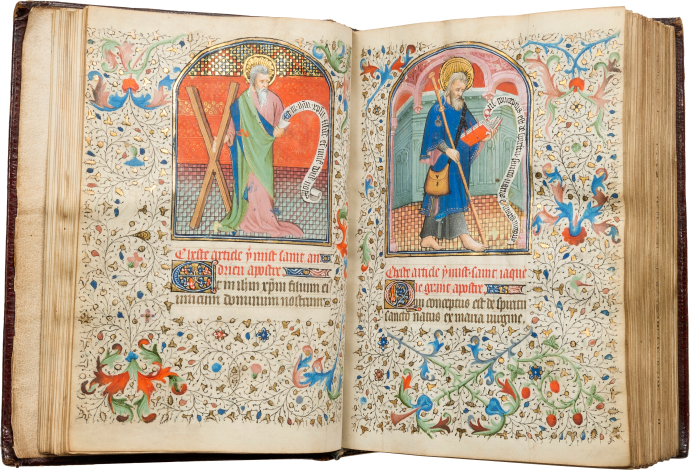 Cheste article y mist saint an
drieu apostre
Et in ihm xpm filium ei
unicum dominum nostrum
conceptus est de
Cheste article y mist saint iaque
le grant apostre
Qui conceptus est de spiritu
sancto natus ex maria virgine.